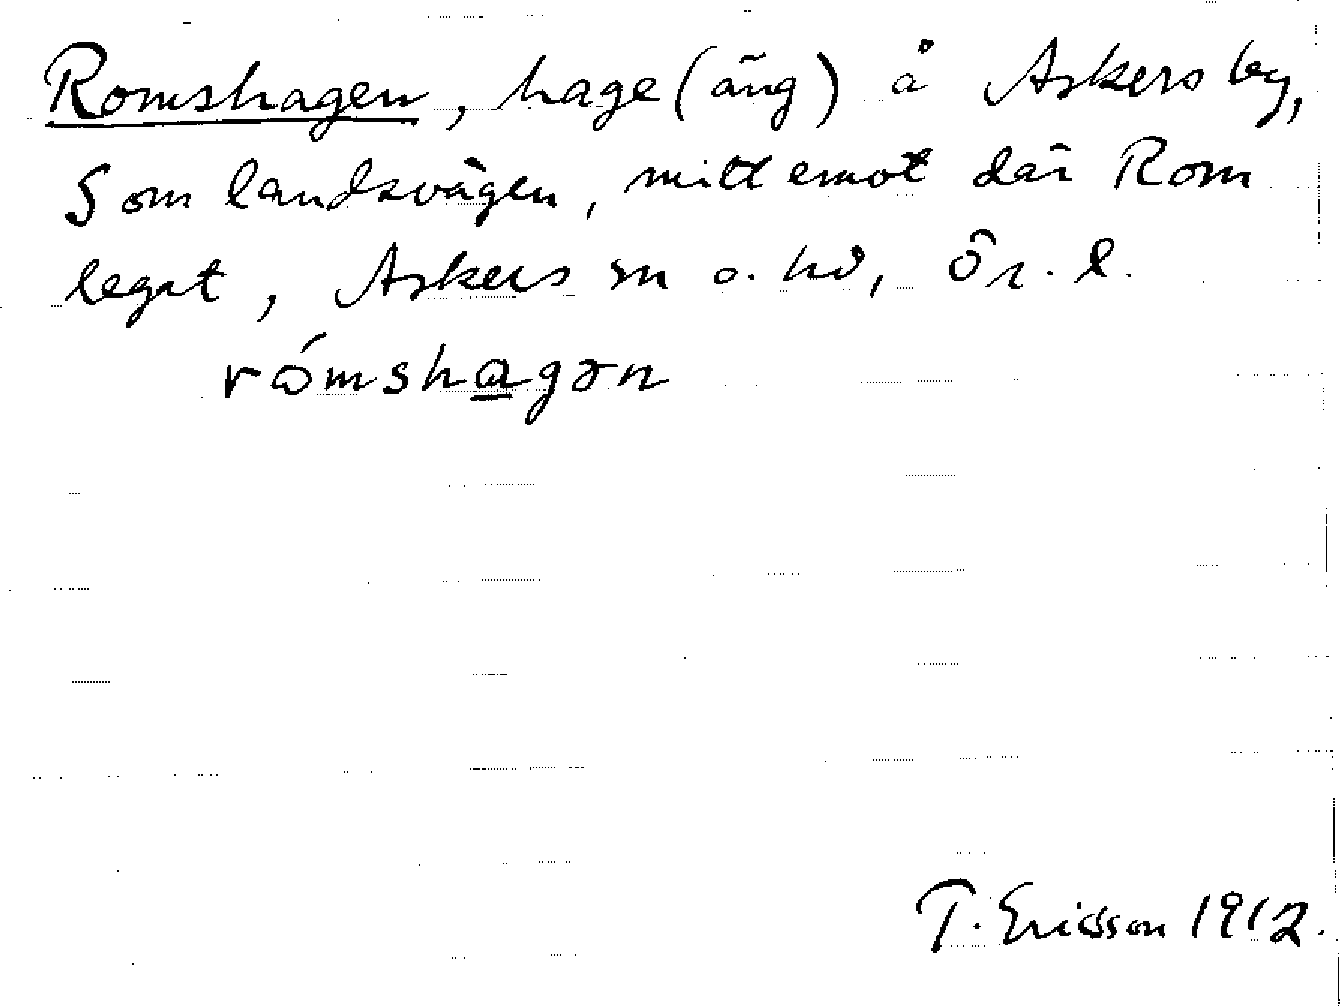 Romshagen, hage (äng) å Askers by,
S om landsvägen, mitt emot där Rom
legat, Askers sn o. hd, Ör. l.
rómshagən
T. Ericsson 1912.